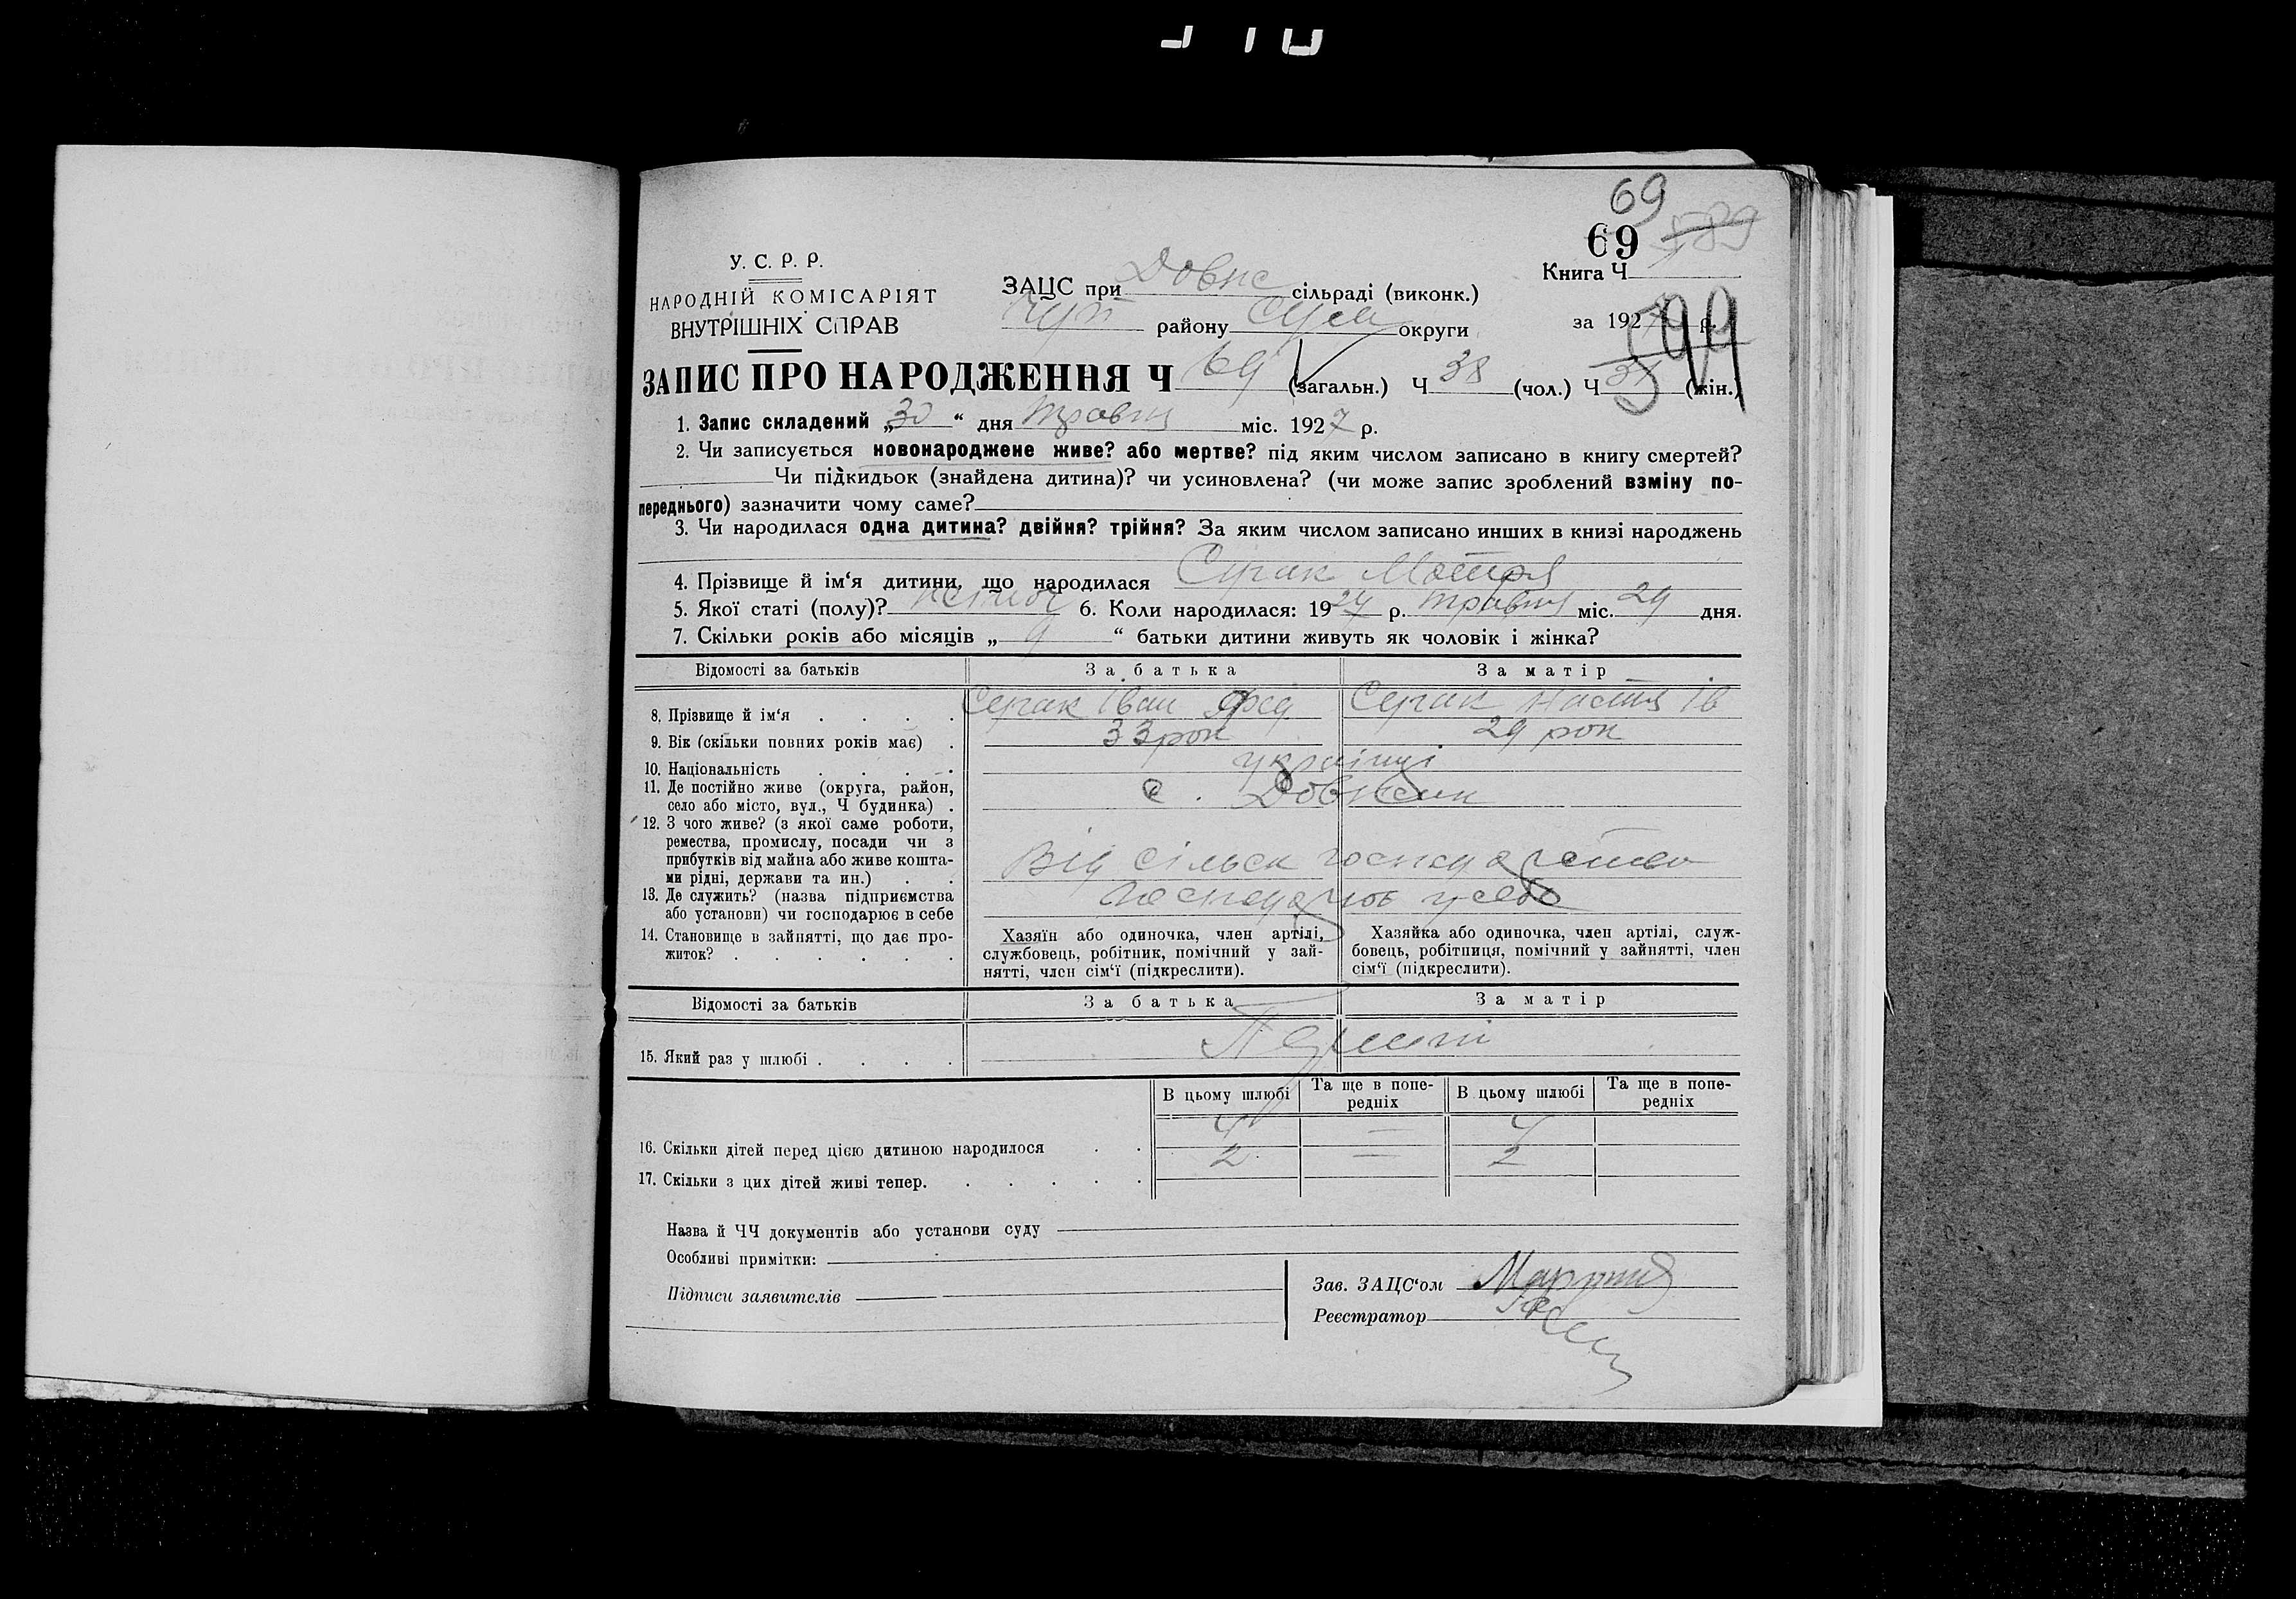 69
69 589
У. С. Р. Р.
НАРОДНІЙ КОМІСАРІЯТ
ВНУТРІШНІХ СПРАВ
Книга Ч
ЗАЦС при Довж сільраді (виконк.)
району Сум округи
за 1927 р.
599
ЗАПИС ПРО НАРОДЖЕННЯ Ч 69 (загальн.) Ч 38 (чол.) Ч 31 (жін.)
1. Запис складений „30“ дня травня міс. 1927 р.
2. Чи записується новонароджене живе? або мертве? під яким числом записано в книгу смертей?
Чи підкидьок (знайдена дитина)? чи усиновлена? (чи може запис зроблений взміну по-
переднього) зазначити чому саме?
3. Чи народилася одна дитина? двійня? трійня? За яким числом записано инших в книзі народжень
4. Прізвище й ім‘я дитини, що народилася Мотря
5. Якої статі (полу)? жіноч 6. Коли народилася: 1927 р. травня міс. 29 дня.
7. Скільки років або місяців „ 9 “ батьки дитини живуть як чоловік і жінка?
Відомості за батьків За батька За матір
8. Прізвище й ім‘я Іван Настя Ів
9. Вік (скільки повних років має) 33 рок 29 рок
10. Національність українці
11. Де постійно живе (округа, район,
село або місто, вул., Ч будинка) с. Довжик
12. З чого живе? (з якої саме роботи,
ремества, промислу, посади чи з
прибутків від майна або живе кошта-
ми рідні, держави та ин.) Від сільск господарства
13. Де служить? (назва підприємства
або установи) чи господарює в себе господарює у себе
14. Становище в зайнятті, що дає про-
житок?
Хазяїн або одиночка, член артілі,
службовець, робітник, помічний у зай-
нятті, член сім‘ї (підкреслити).
Хазяйка або одиночка, член артілі, служ-
бовець, робітниця, помічний у зайнятті, член
сім‘ї (підкреслити).
Відомості за батьків За батька За матір
15. Який раз у шлюбі Перший
В цьому шлюбі Та ще в попе-
редніх В цьому шлюбі Та ще в попе-
редніх
16. Скільки дітей перед цією дитиною народилося 4 — 4
17. Скільки з цих дітей живі тепер. 2 — 2
Назва й ЧЧ документів або установи суду
Особливі примітки:
Підписи заявителів
Зав. ЗАЦС‘ом
Реєстратор